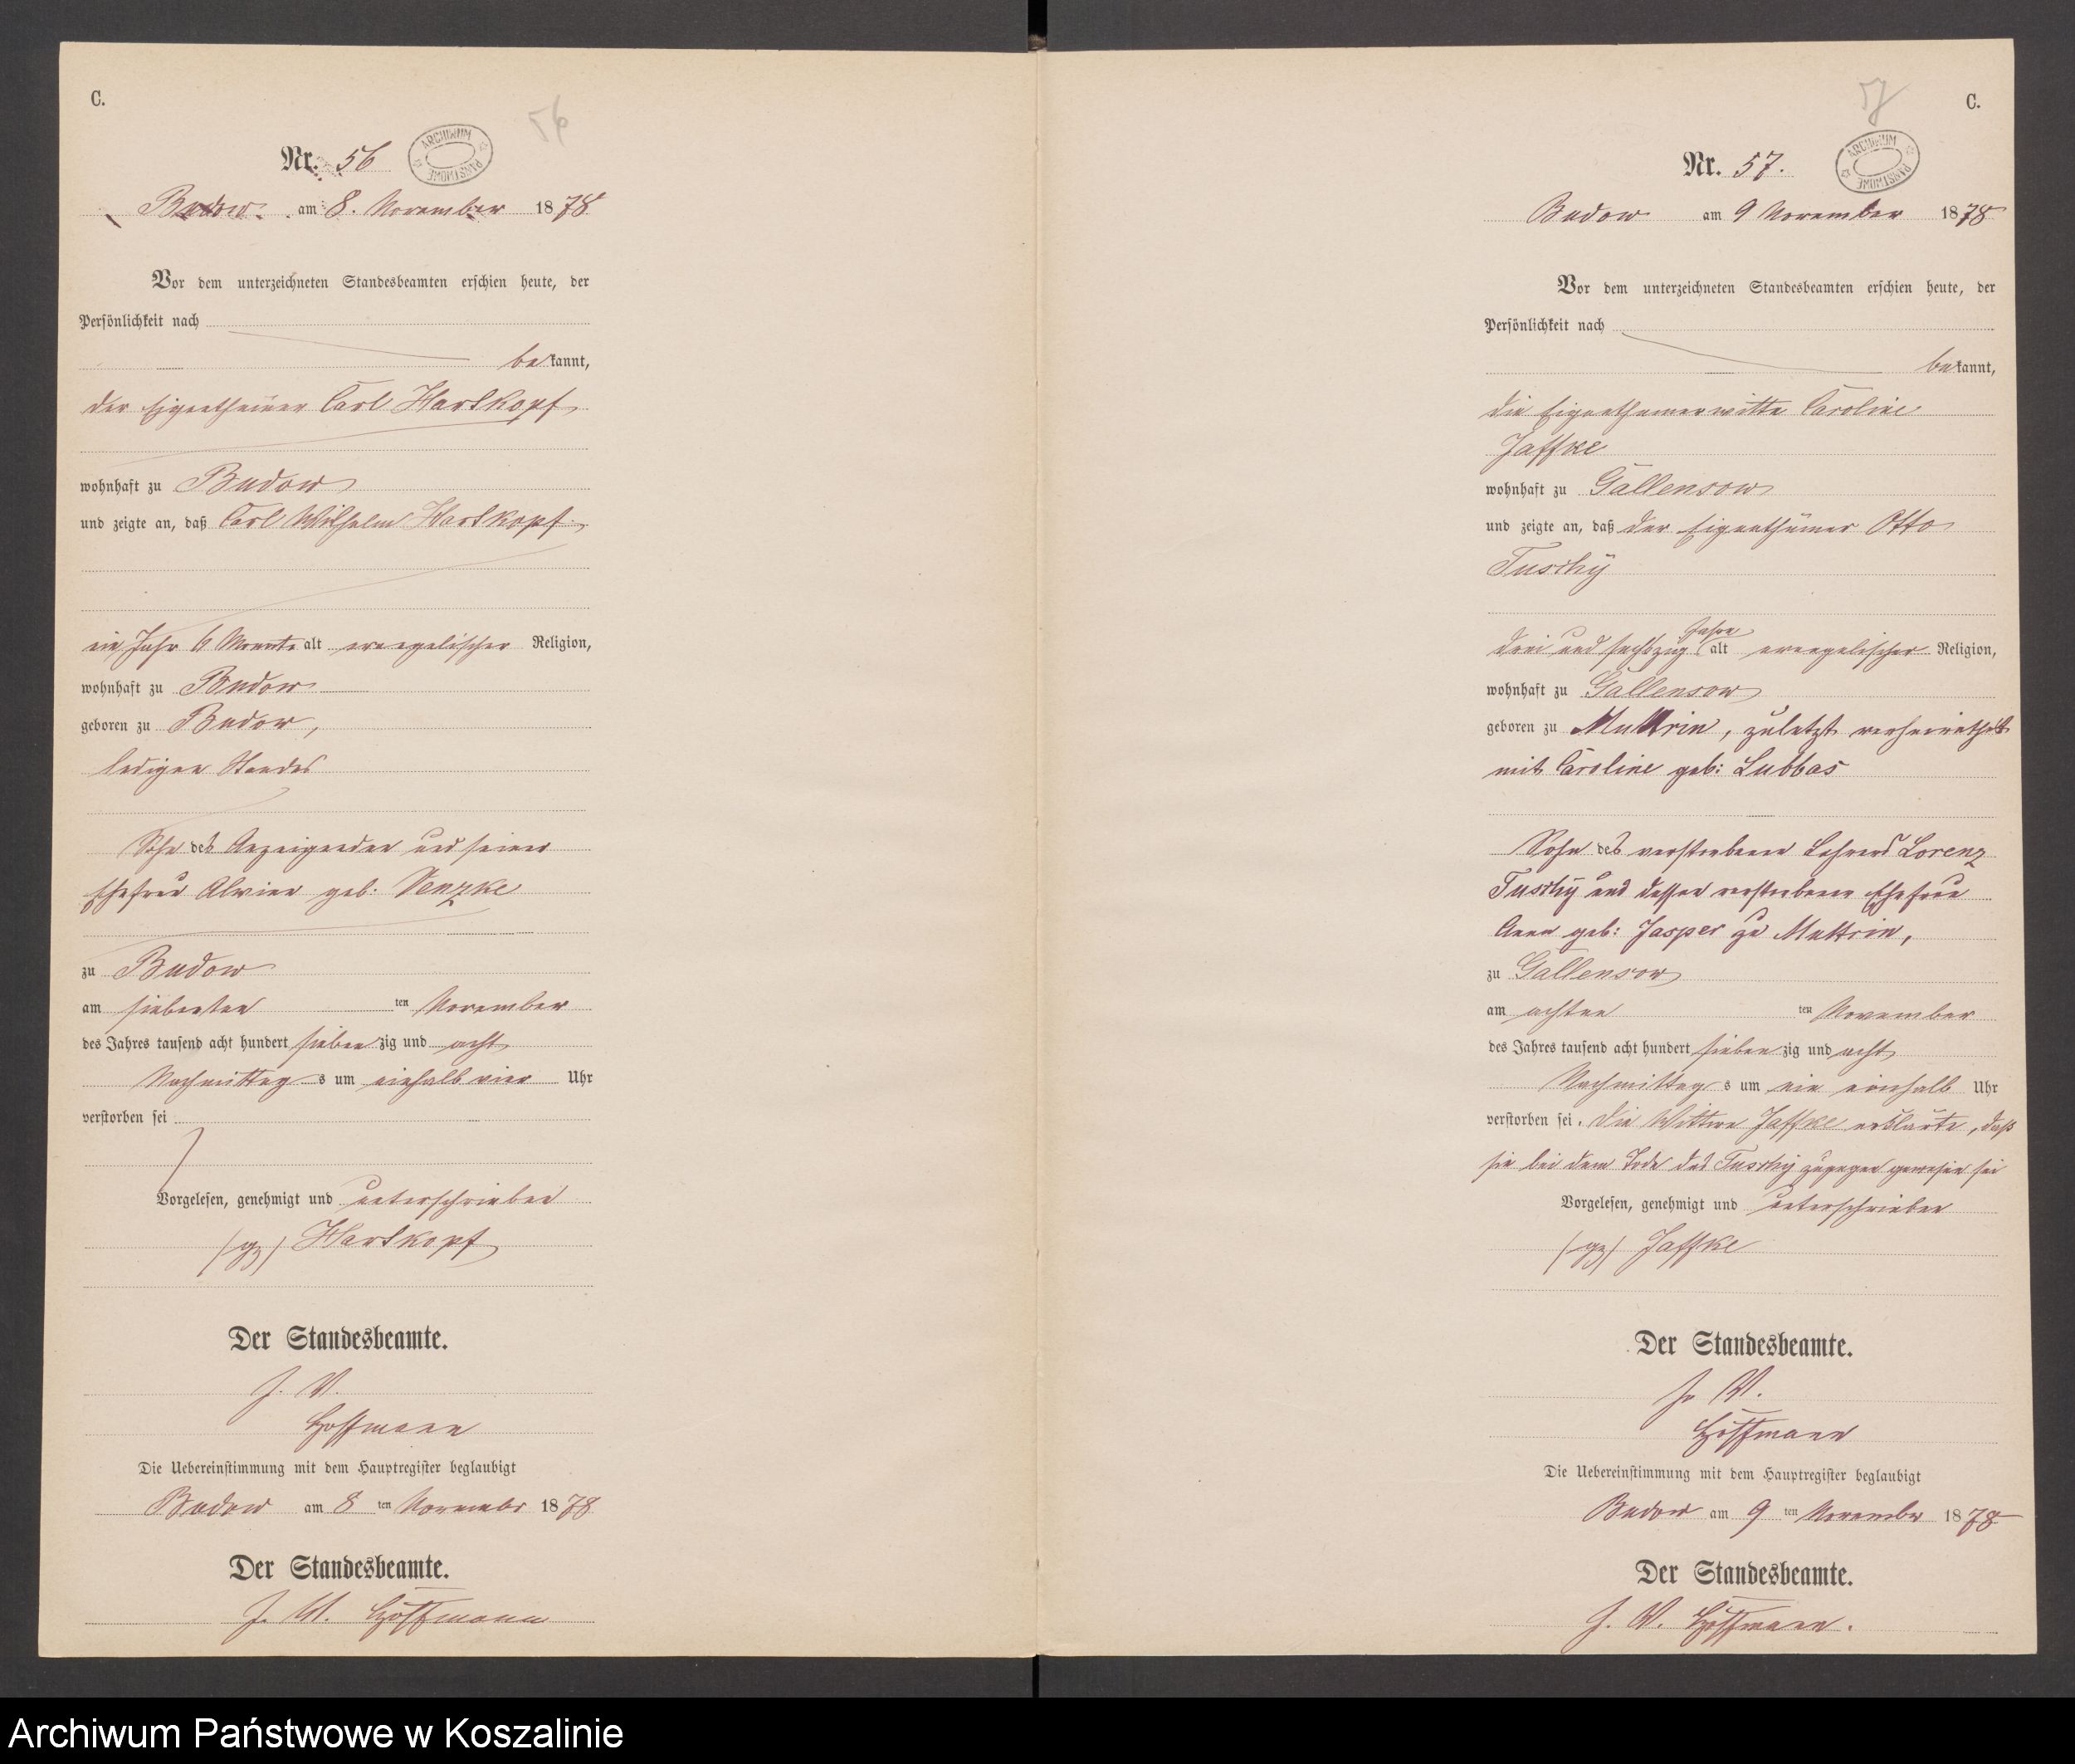 C.
56
Nr. 56
ARCHIWUM PAŃSTWOWE
Budow am 8. November 1878
Vor dem unterzeichneten Standesbeamten erschien heute, der
Persönlichkeit nach
bekannt,
der Eigenthümer Carl Hartkopf
wohnhaft zu Budow
und zeigte an, daß Carl Wilhelm Hartkopf
ein Jahr 6 Monate alt evangelischer Religion,
wohnhaft zu Budow
geboren zu Budow,
ledigen Standes
Sohn des Anzeigenden und seiner
Ehefrau Alvine geb: Venzke
zu Budow
am siebenten ten November
des Jahres tausend acht hundert siebenzig und acht
Nachmittags um einhalb vier Uhr
verstorben sei
Vorgelesen, genehmigt und unterschrieben
(gz) Hartkopf
Der Standesbeamte.
J. V.
Hoffmann
Die Uebereinstimmung mit dem Hauptregister beglaubigt
Budow am 8 ten Novembr 1878
Der Standesbeamte.
J. V. Hoffmann
57
C.
Nr. 57.
ARCHIWUM PAŃSTWOWE
Budow am 9 November 1878
Vor dem unterzeichneten Standesbeamten erschien heute, der
Persönlichkeit nach
bekannt,
die Eigenthümerwittwe Caroline
Jaffke
wohnhaft zu Gallensow
und zeigte an, daß der Eigenthümer Otto
Tuschy
Jahre
drei und sechszig alt evangelischer Religion,
wohnhaft zu Gallensow
geboren zu Muttrin, zuletzt verheirathet
mit Caroline geb: Lubbas
Sohn des verstorbenen Lehrers Lorenz
Tuschy und dessen verstorbenen Ehefrau
Anna geb: Jasper zu Muttrin,
zu Gallensow
am achten ten November
des Jahres tausend acht hundert siebenzig und acht
Nachmittags um ein einhalb Uhr
verstorben sei. Die Wittwe Jaffke erklärte, daß
sie bei dem Tode des Tuschy zugegen gewesen sei
Vorgelesen, genehmigt und unterschrieben
(gz) Jaffke
Der Standesbeamte.
J. V.
Hoffmann
Die Uebereinstimmung mit dem Hauptregister beglaubigt
Budow am 9 ten November 1878
Der Standesbeamte.
J. V. Hoffmann.
Archiwum Państwowe w Koszalinie